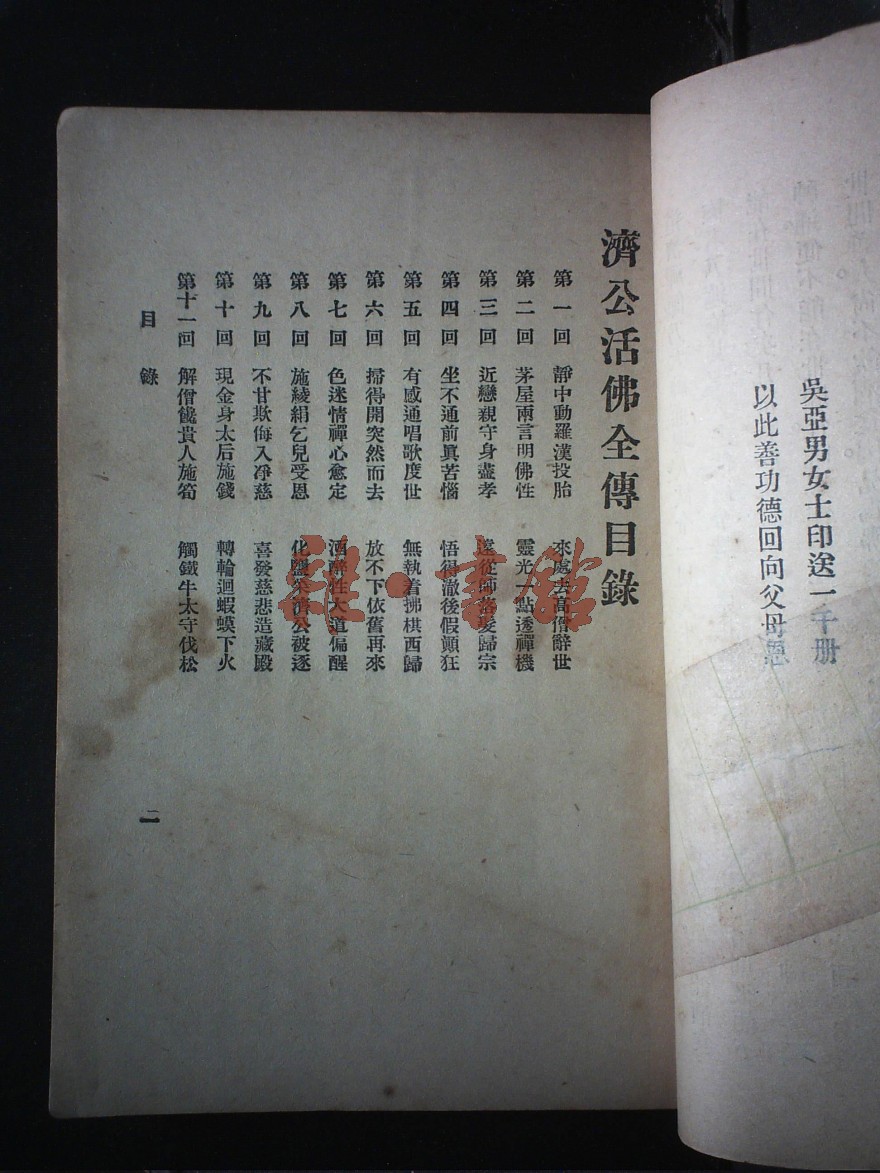 吳亞男女士印送一千册
以此善功德回向父母恩
濟公活佛全傳目錄
第一回 靜中動羅漢投胎 來處去高僧辭世
第二回 茅屋兩言明佛性 靈光一點透禪機
第三回 近戀親守身盡孝 遠從師落髮歸宗
第四回 坐不通前眞苦惱 悟得澈後假顚狂
第五回 有感通唱歌度世 無執着拂棋西歸
第六回 掃得開突然而去 放不下依舊再來
第七回 色迷情禪心愈定 酒醉性大道偏醒
第八回 施綾絹乞兒受恩 化鹽菜濟公被逐
第九回 不甘欺侮入淨慈 喜發慈悲造藏殿
第十回 現金身太后施錢 轉輪迴蝦蟆下火
第十一回 解僧饞貴人施筍 觸鐵牛太守伐松
目錄
二
雜·書館